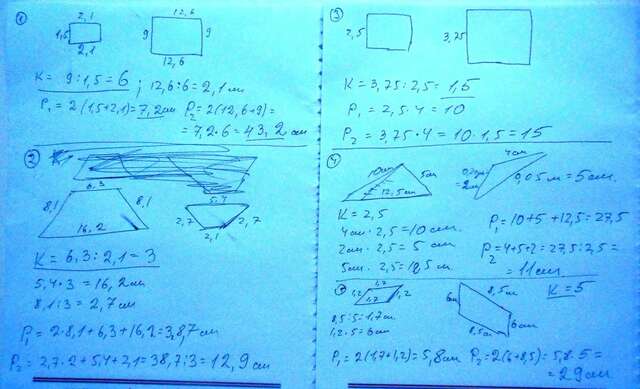 ①
2,1
1,5
2,1
12,6
9
9
12,6
K = 9:1,5 = 6 ; 12,6:6 = 2,1 см
P₁ = 2(1,5+2,1) = 7,2 см P₂ = 2(12,6+9) =
= 7,2·6 = 43,2 см
②
6,3
8,1
8,1
16,2
5,4
2,7
2,7
2,1
K = 6,3:2,1 = 3
5,4·3 = 16,2 см
8,1:3 = 2,7 см
P₁ = 2·8,1+6,3+16,2 = 38,7 см
P₂ = 2,7·2+5,4+2,1 = 38,7:3 = 12,9 см
③
2,5
3,75
K = 3,75:2,5 = 1,5
P₁ = 2,5·4 = 10
P₂ = 3,75·4 = 10·1,5 = 15
④
10см
5см
12,5см
4см
= 2см
0,05 м = 5см
K = 2,5
4см·2,5 = 10см
2см·2,5 = 5 см
5см·2,5 = 12,5 см
P₁ = 10+5+12,5 = 27,5
P₂ = 4+5+2 = 27,5:2,5 =
= 11см
1,7
1,2
1,7
1,2
8,5м
6м
6см
8,5м
K = 5
8,5:5 = 1,7см
1,2·5 = 6см
P₁ = 2(1,7+1,2) = 5,8см P₂ = 2(6+8,5) = 5,8·5 =
= 29см